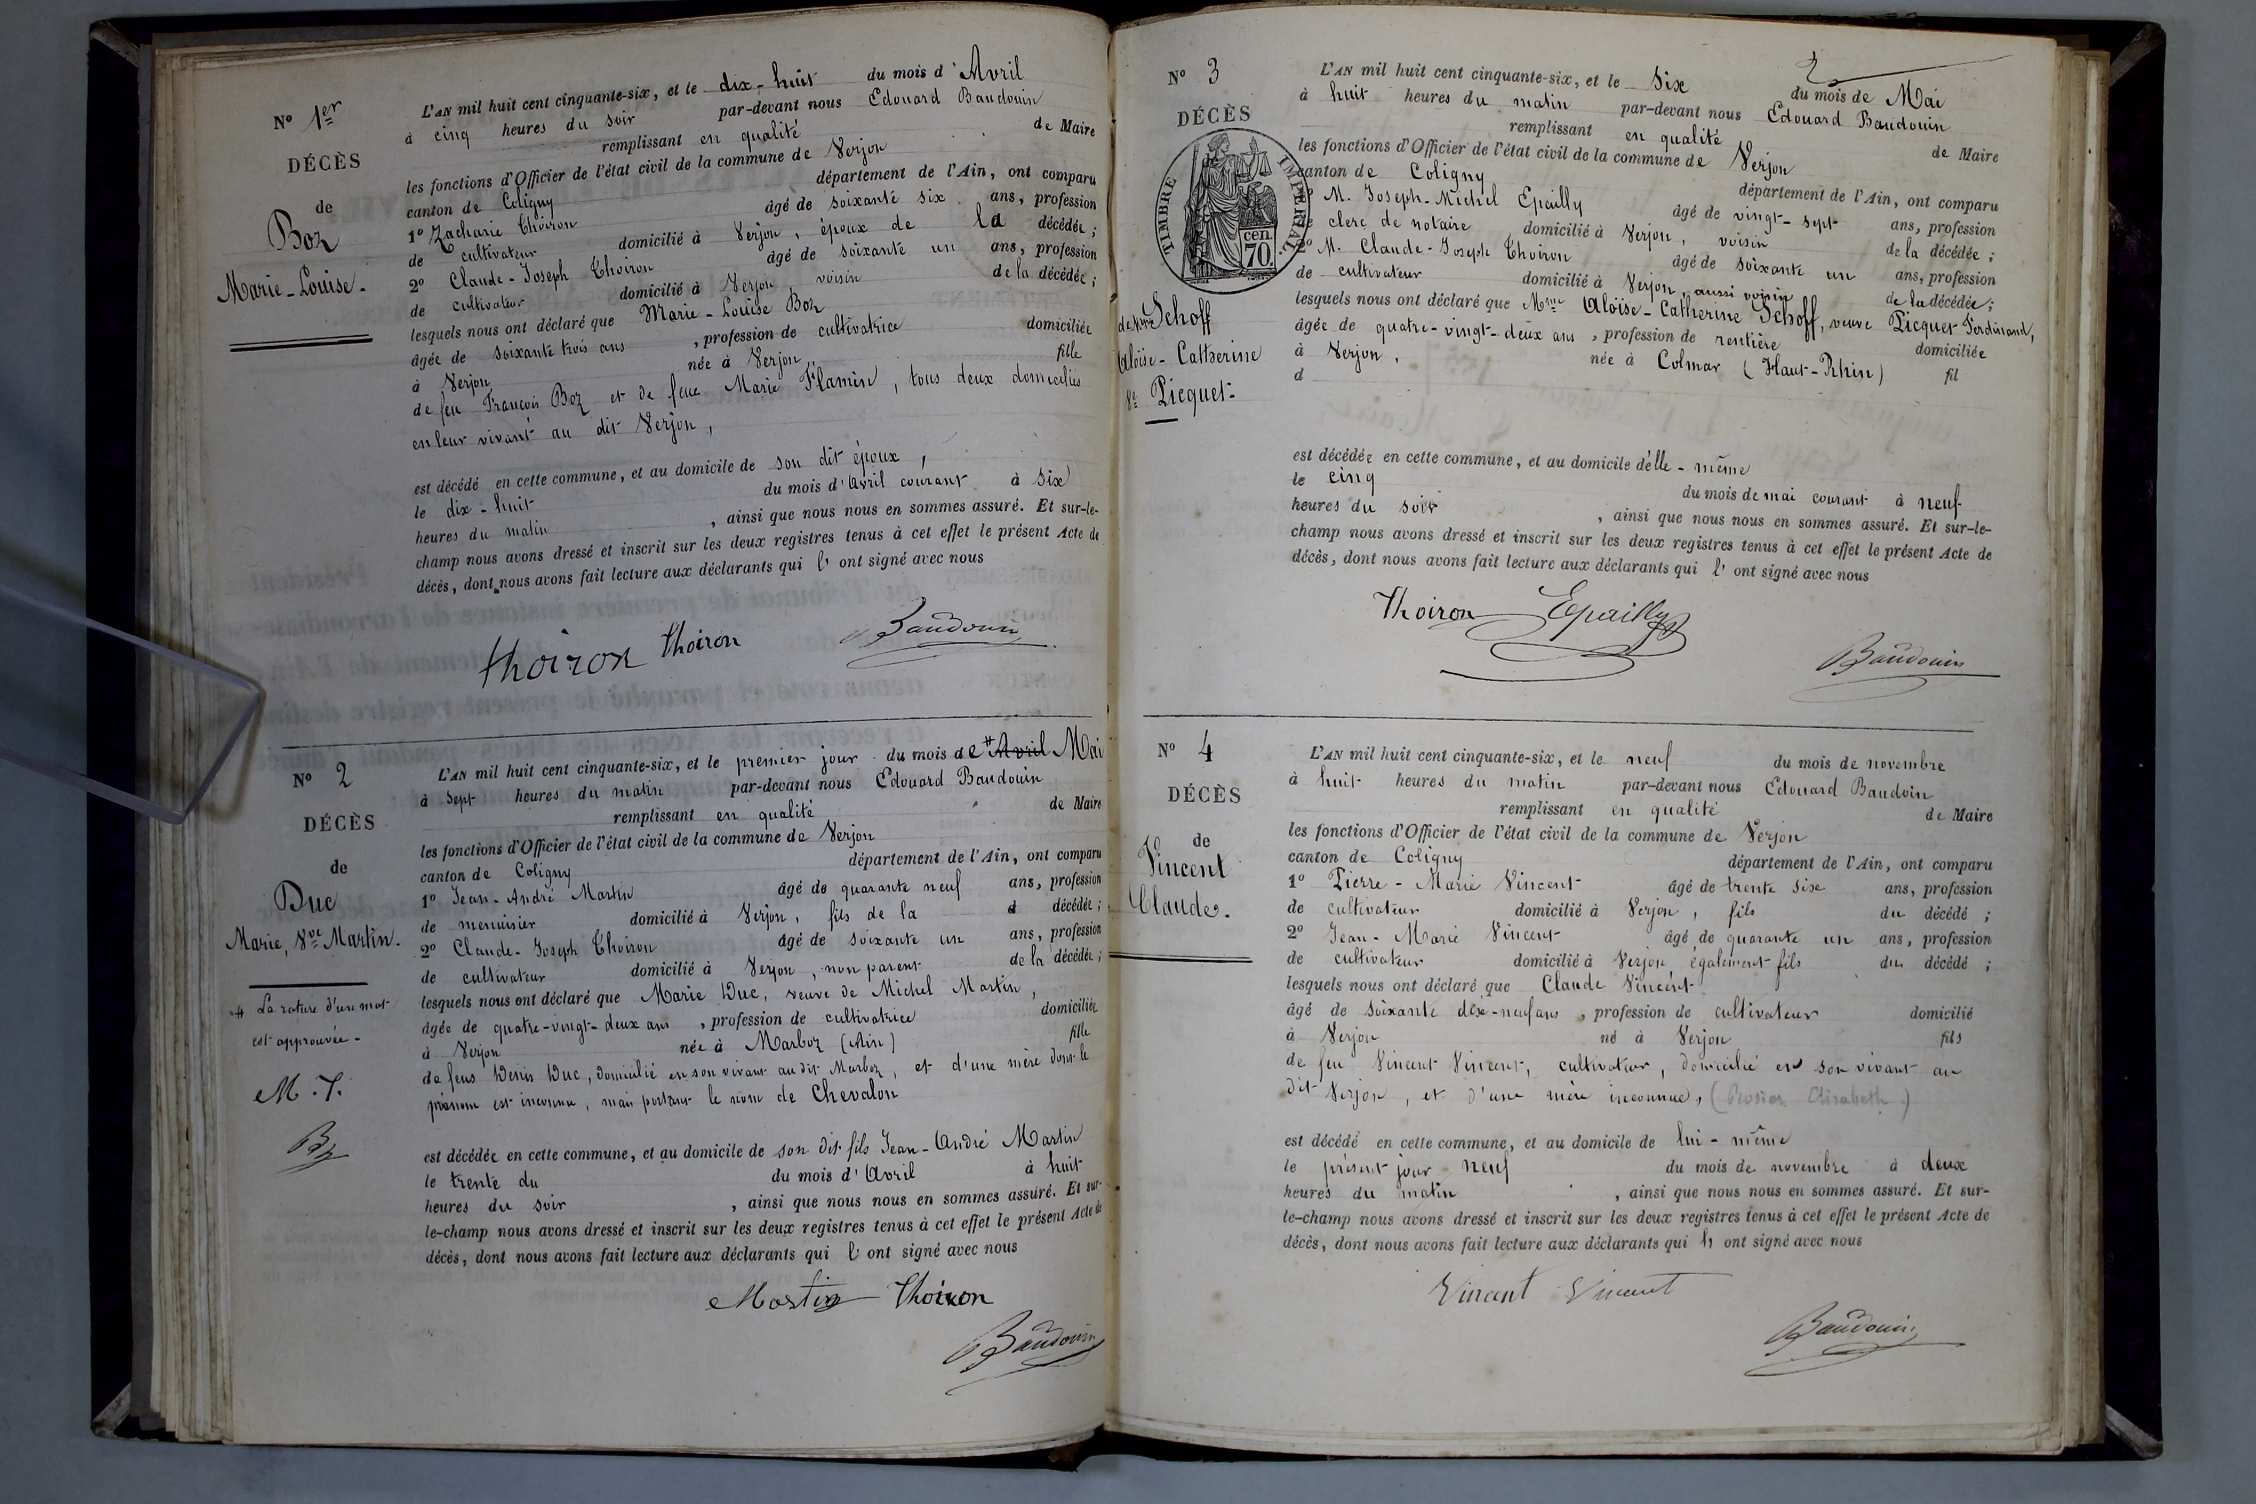 N° 1er
DÉCÈS
de
Boz
Marie-Louise.
L'AN mil huit cent cinquante-six, et le dix-huit du mois d'Avril
à cinq heures du soir par-devant nous Edouard Baudouin
remplissant en qualité de Maire
les fonctions d'Officier de l'état civil de la commune de Verjon
canton de Coligny département de l'Ain, ont comparu
1° Zacharie Thoiron âgé de soixante six ans, profession
de cultivateur domicilié à Verjon, époux de la décédée;
2° Claude-Joseph Thoiron âgé de soixante un ans, profession
de cultivateur domicilié à Verjon, voisin de la décédée;
lesquels nous ont déclaré que Marie-Louise Boz
âgée de soixante trois ans, profession de cultivatrice domiciliée
à Verjon née à Verjon fille
de feu François Boz et de feue Marie Flamin, tous deux domiciliés
en leur vivant au dit Verjon,
est décédé en cette commune, et au domicile de son dit époux,
le dix-huit du mois d'Avril courant à six
heures du matin, ainsi que nous nous en sommes assuré. Et sur-le-
champ nous avons dressé et inscrit sur les deux registres tenus à cet effet le présent Acte de
décès, dont nous avons fait lecture aux déclarants qui l'ont signé avec nous
Thoiron Thoiron Baudouin
N° 2
DÉCÈS
de
Duc
Marie, Vve Martin.
# La rature d'un mot
est approuvée.
M. J.
L'AN mil huit cent cinquante-six, et le premier jour du mois de # Avril Mai
à sept heures du matin par-devant nous Edouard Baudouin
remplissant en qualité de Maire
les fonctions d'Officier de l'état civil de la commune de Verjon
canton de Coligny département de l'Ain, ont comparu
1° Jean-André Martin âgé de quarante neuf ans, profession
de menuisier domicilié à Verjon, fils de la d décédée;
2° Claude-Joseph Thoiron âgé de soixante un ans, profession
de cultivateur domicilié à Verjon, non parent de la décédée;
lesquels nous ont déclaré que Marie Duc, veuve de Michel Martin,
âgée de quatre-vingt-deux ans, profession de cultivatrice domiciliée
à Verjon née à Marboz (Ain) fille
de feus Denis Duc, domicilié en son vivant au dit Marboz, et d'une mère dont le
prénom est inconnu, mais portant le nom de Chevalon
est décédée en cette commune, et au domicile de son dit fils Jean-André Martin
le trente du du mois d'Avril à huit
heures du soir, ainsi que nous nous en sommes assuré. Et sur-
le-champ nous avons dressé et inscrit sur les deux registres tenus à cet effet le présent Acte de
décès, dont nous avons fait lecture aux déclarants qui l'ont signé avec nous
Martin Thoiron
Baudouin
2
N° 3
DÉCÈS
TIMBRE IMPÉRIAL.
70 cen.
de Mme Schoff
Aloïse-Catherine
Ve Picquet.
L'AN mil huit cent cinquante-six, et le six du mois de Mai
à huit heures du matin par-devant nous Edouard Baudouin
remplissant en qualité de Maire
les fonctions d'Officier de l'état civil de la commune de Verjon
canton de Coligny département de l'Ain, ont comparu
1° M. Joseph-Michel Epailly âgé de vingt-sept ans, profession
de clerc de notaire domicilié à Verjon, voisin de la décédée;
2° M. Claude-Joseph Thoiron âgé de soixante un ans, profession
de cultivateur domicilié à Verjon, aussi voisin de la décédée;
lesquels nous ont déclaré que Mme Aloïse-Catherine Schoff, veuve Picquet Ferdinand,
âgée de quatre-vingt-deux ans, profession de rentière domiciliée
à Verjon, née à Colmar (Haut-Rhin) fil
d
est décédée en cette commune, et au domicile d'elle-même
le cinq du mois de mai courant à neuf
heures du soir, ainsi que nous nous en sommes assuré. Et sur-le-
champ nous avons dressé et inscrit sur les deux registres tenus à cet effet le présent Acte de
décès, dont nous avons fait lecture aux déclarants qui l'ont signé avec nous
Thoiron Epailly
Baudouin
N° 4
DÉCÈS
de
Vincent
Claude.
L'AN mil huit cent cinquante-six, et le neuf du mois de novembre
à huit heures du matin par-devant nous Edouard Baudoin
remplissant en qualité de Maire
les fonctions d'Officier de l'état civil de la commune de Verjon
canton de Coligny département de l'Ain, ont comparu
1° Pierre-Marie Vincent âgé de trente six ans, profession
de cultivateur domicilié à Verjon, fils du décédé;
2° Jean-Marie Vincent âgé de quarante un ans, profession
de cultivateur domicilié à Verjon, également fils du décédé;
lesquels nous ont déclaré que Claude Vincent
âgé de soixante dix-neuf ans, profession de cultivateur domicilié
à Verjon né à Verjon fils
de feu Vincent Vincent, cultivateur, domicilié en son vivant au
dit Verjon, et d'une mère inconnue, (Elisabeth)
est décédé en cette commune, et au domicile de lui-même
le présent jour neuf du mois de novembre à deux
heures du matin, ainsi que nous nous en sommes assuré. Et sur-
le-champ nous avons dressé et inscrit sur les deux registres tenus à cet effet le présent Acte de
décès, dont nous avons fait lecture aux déclarants qui l'ont signé avec nous
Vincent Vincent
Baudouin